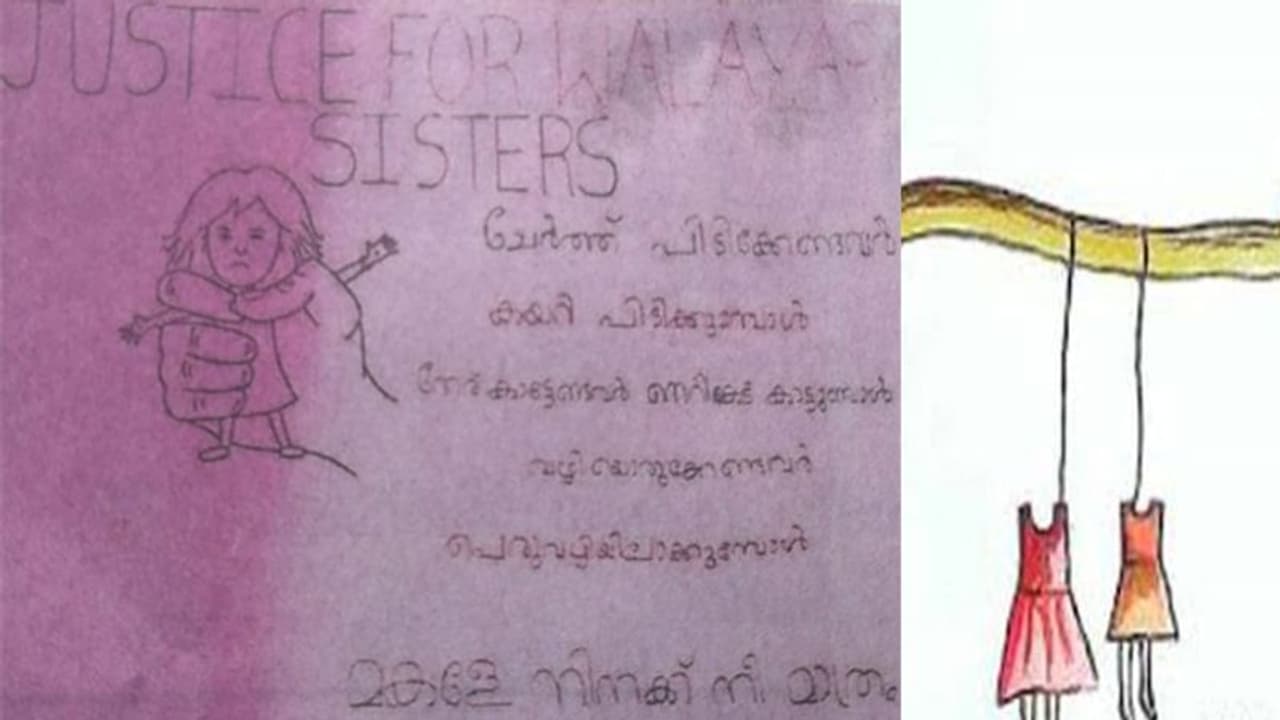 JUSTICE FOR WALAYAR
SISTERS
ചേർത്ത് പിടിക്കേണ്ടവർ
കയറി പിടിക്കുമ്പോൾ
നേര് കാട്ടേണ്ടവർ നെറികേട് കാട്ടുമ്പോൾ
വഴിയൊരുക്കേണ്ടവർ
പെരുവഴിയിലാക്കുമ്പോൾ
മകളേ നിനക്ക് നീ മാത്രം